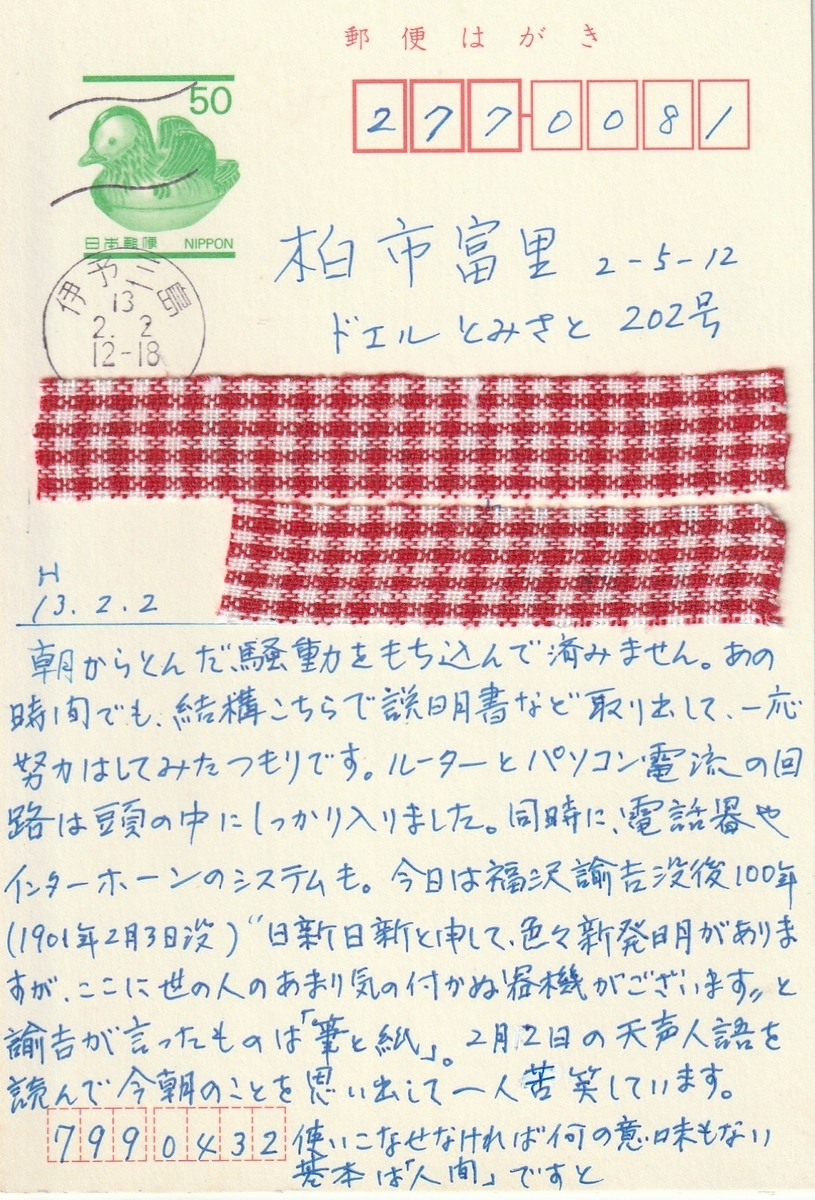 郵便はがき
50
日本郵便 NIPPON
277-0081
伊予三島
13
2. 2
12-18
柏市富里 2-5-12
ドエルとみさと 202号
H
13.2.2
朝からとんだ騒動をもち込んで済みません。あの
時間でも、結構こちらで説明書など取り出して、一応
努力はしてみたつもりです。ルーターとパソコン電流の回
路は頭の中にしっかり入りました。同時に、電話器や
インターホーンのシステムも。今日は福沢諭吉没後100年
(1901年2月3日没)“日新日新と申して、色々新発明がありま
すが、ここに世の人のあまり気の付かぬ器機がございます〃と
諭吉が言ったものは「筆と紙」。2月2日の天声人語を
読んで今朝のことを思い出して一人苦笑しています。
7990432
使いこなせなければ何の意味もない
基本は「人間」ですと